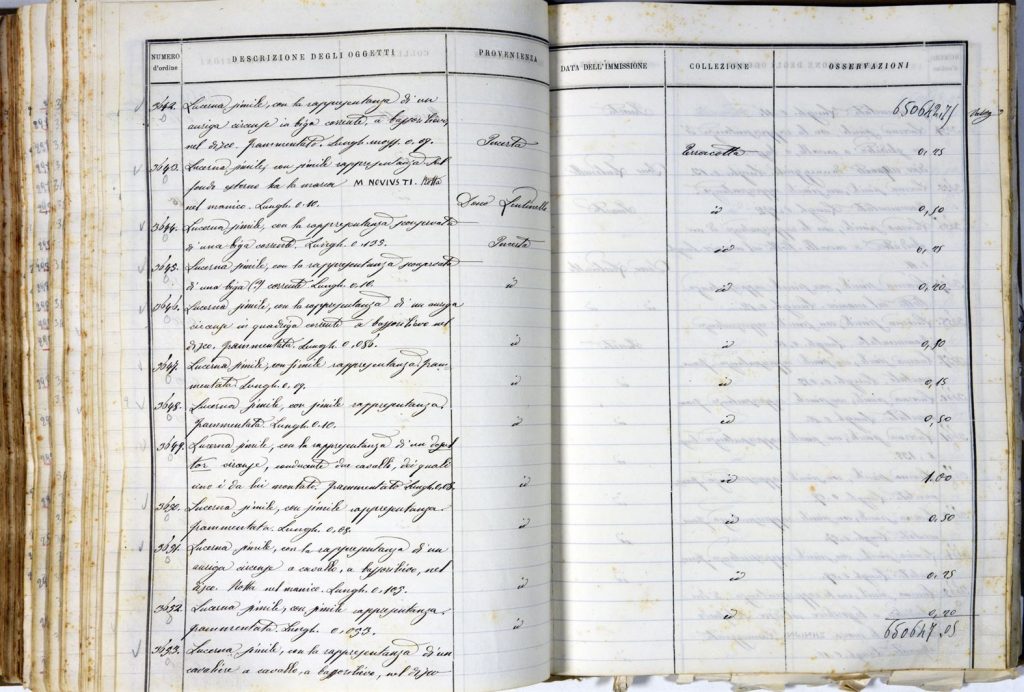 NUMERO d'ordine DESCRIZIONE DEGLI OGGETTI PROVENIENZA DATA DELL'IMMISSIONE COLLEZIONE OSSERVAZIONI
650642,75
3642. Lucerna simile, con la rappresentanza di un
auriga circense in biga corrente, a bassorilievo,
nel disco. Frammentata. Lungh. mass. 0,09. Incerta Terracotta 0,25
3643. Lucerna simile, con simile rappresentanza. Nel
fondo esterno ha la marca M NOVIVSTI. Rotta
nel manico. Lungh. 0,10. id 0,50
3644. Lucerna simile, con la rappresentanza
di una biga corrente. Lungh. 0,135. Incerta id 0,25
3645. Lucerna simile, con la rappresentanza
di una biga (?) corrente Lungh. 0,10. id id 0,20
3646. Lucerna simile, con la rappresentanza di un auriga
circense in quadriga corrente a bassorilievo nel
disco. Frammentata. Lungh. 0,086. id id 0,50
3647. Lucerna simile, con simile rappresentanza. Fram-
mentata. Lungh. 0,09. id id 0,15
3648. Lucerna simile, con simile rappresentanza.
Frammentata. Lungh. 0,10. id id 0,50
3649. Lucerna simile, con la rappresentanza di un desul
tor circense, conducente due cavalli, dei quali
uno è da lui montato. Frammentata Lungh. 0,08. id id 1.00
3650. Lucerna simile, con simile rappresentanza.
Frammentata. Lungh. 0,08. id id 0,50
3651. Lucerna simile, con la rappresentanza di un
auriga circense a cavallo, a bassorilievo, nel
disco. Rotta nel manico. Lungh. 0,105. id id 0,25
3652. Lucerna simile, con simile rappresentanza.
Frammentata. Lungh. 0,095. id id 0,20
650647,05
3653. Lucerna simile, con la rappresentanza di un
cavaliere a cavallo, a bassorilievo, nel disco